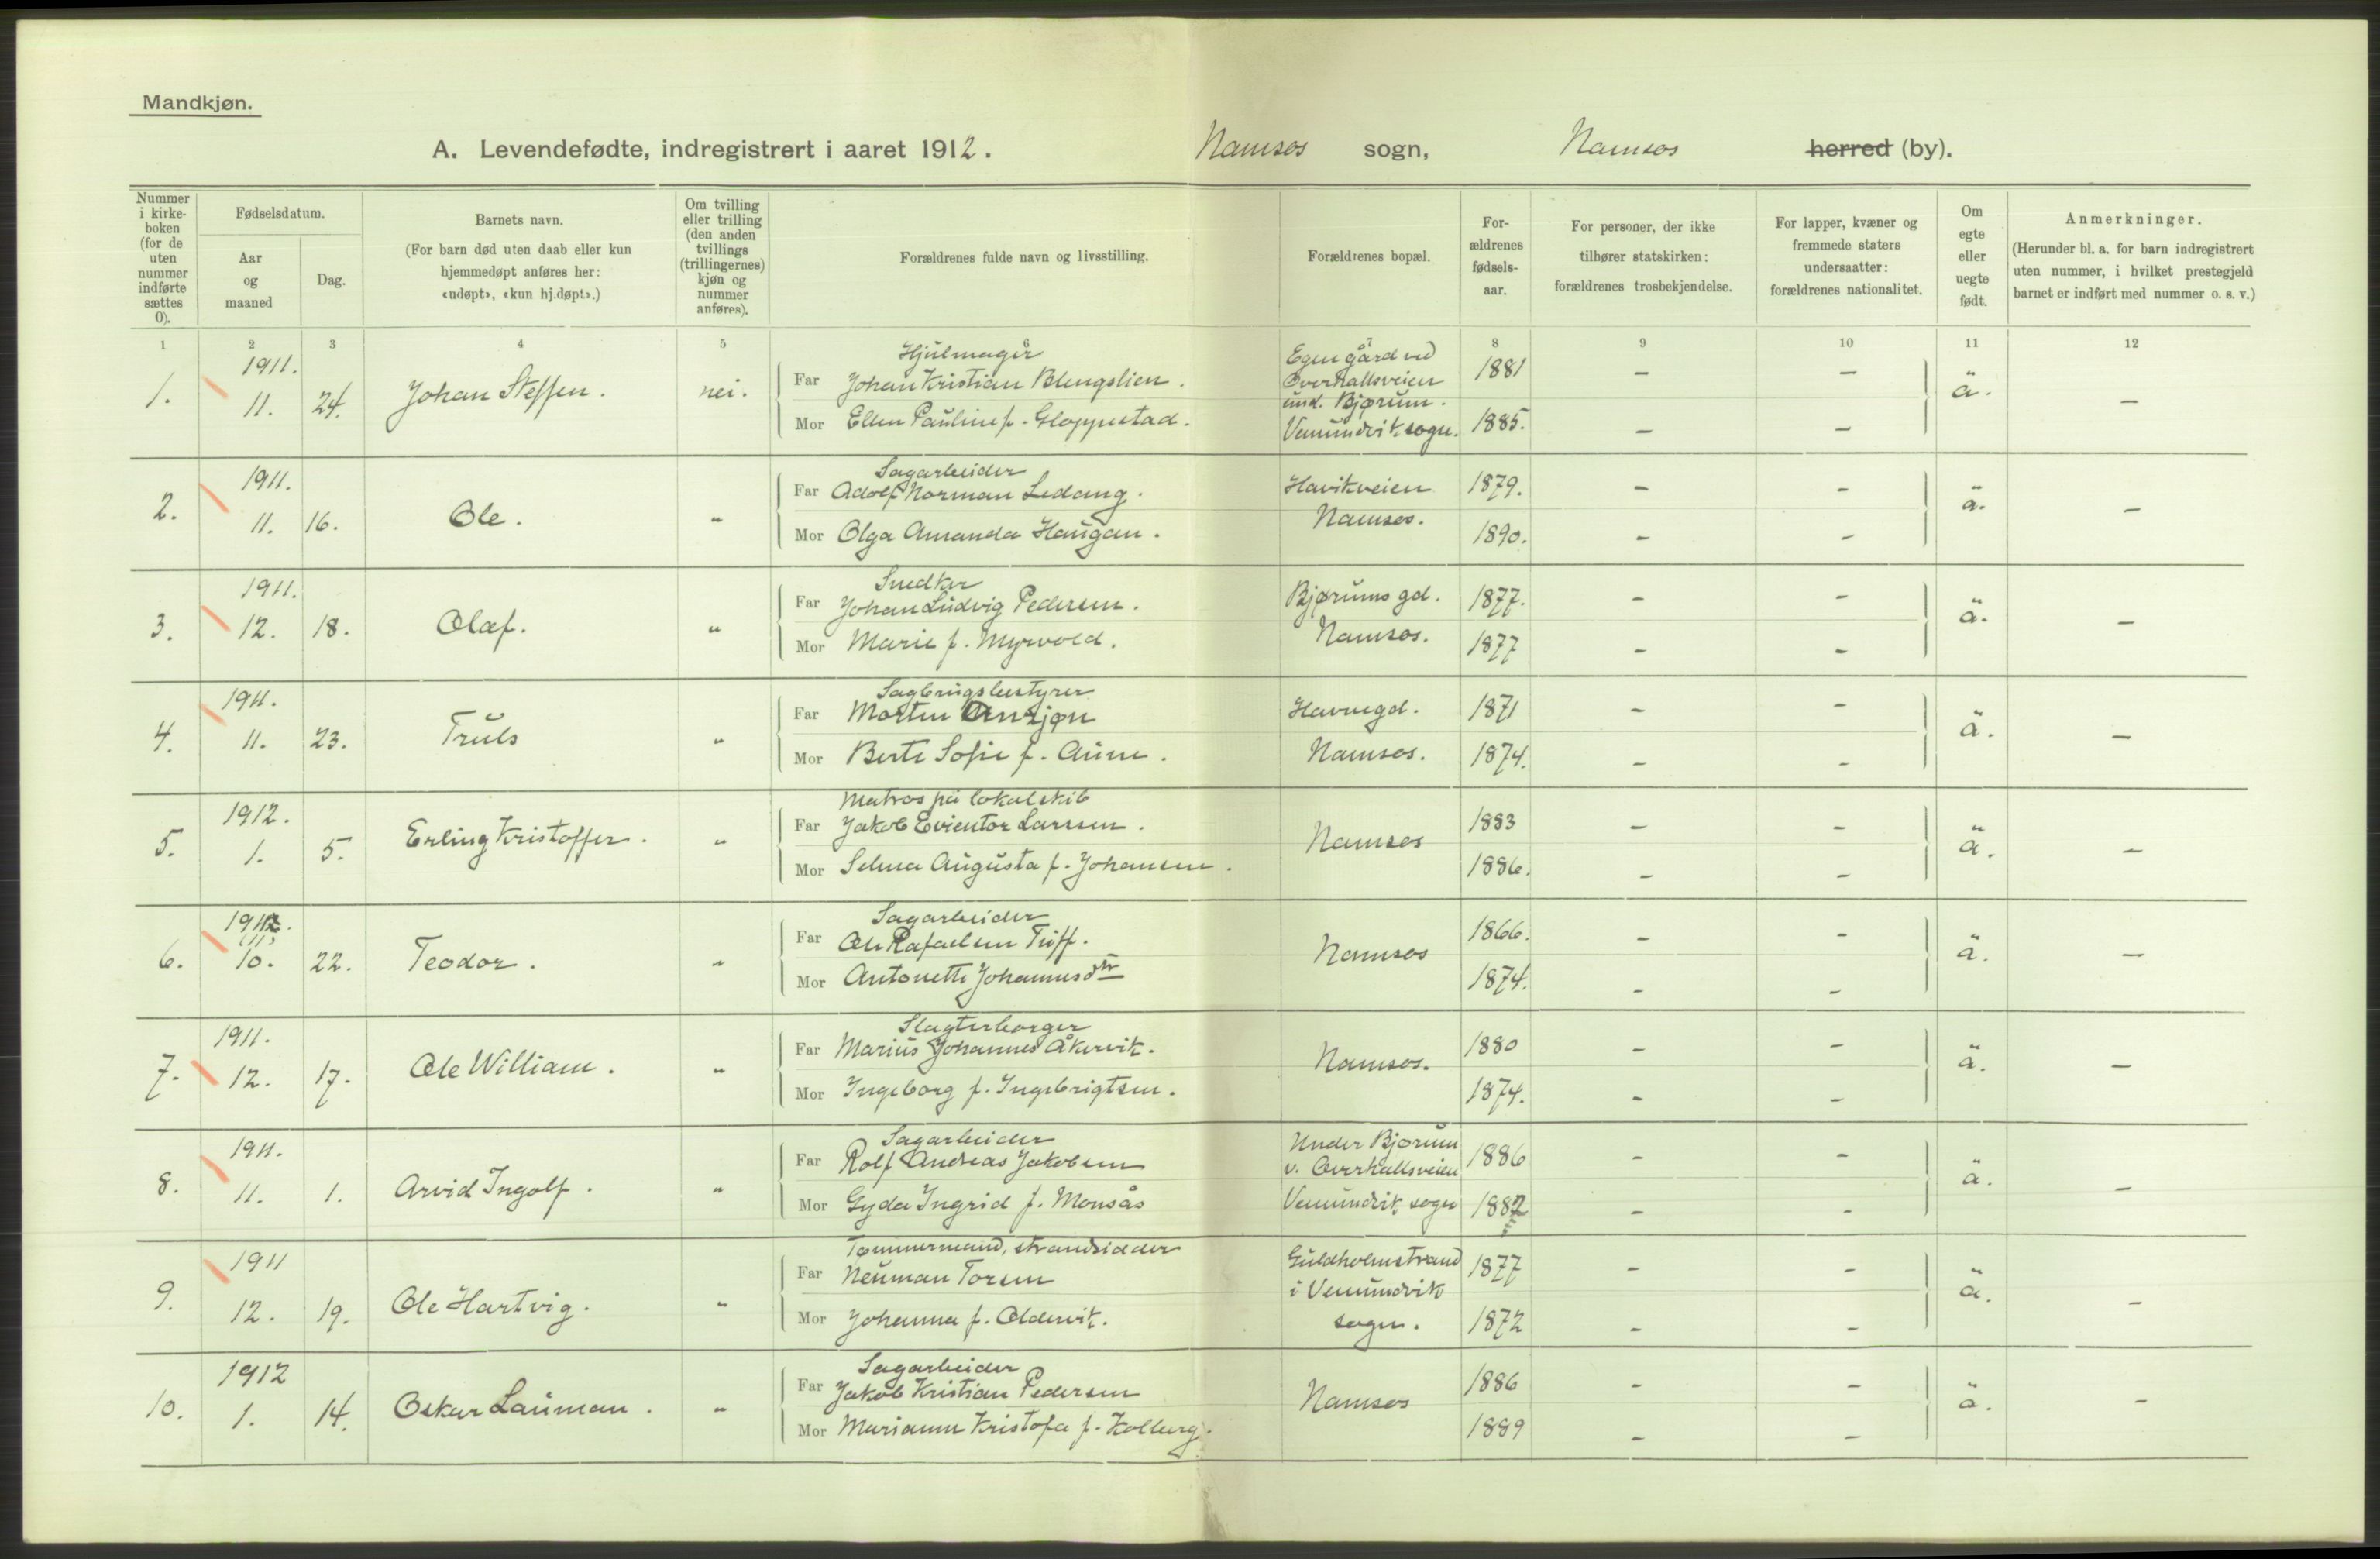 Mandkjøn.
A. Levendefødte, indregistrert i aaret 1912. Namsos sogn, Namsos herred (by).
Nummer i kirke-boken (for de uten nummer indførte sættes 0).
Fødselsdatum.
Aar og maaned
Dag.
Barnets navn.
(For barn død uten daab eller kun hjemmedøpt anføres her: «udøpt», «kun hj.døpt».)
Om tvilling eller trilling (den anden tvillings (trillingernes) kjøn og nummer anføres).
Forældrenes fulde navn og livsstilling.
Forældrenes bopæl.
For-ældrenes fødsels-aar.
For personer, der ikke tilhører statskirken: forældrenes trosbekjendelse.
For lapper, kvæner og fremmede staters undersaatter: forældrenes nationalitet.
Om egte eller uegte født.
Anmerkninger.
(Herunder bl. a. for barn indregistrert uten nummer, i hvilket prestegjeld barnet er indført med nummer o. s. v.)
1 2 3 4 5 6 7 8 9 10 11 12
1. 1911. 11. 24. Johan Steffen. nei.
Hjulmager
Far Johan Kristian Blengslien. 1881 — —
Mor Ellen Pauline f. Gloppestad. 1885. — —
Egen gård ved
Overhallsveien
und. Bjørum.
Vemundvik sogn.
ä. —
2. 1911. 11. 16. Ole. "
Sagarbeider
Far Adolf Norman Ledang. Havikveien 1879. - -
Mor Olga Amanda Haugan. Namsos. 1890. - -
ä. —
3. 1911. 12. 18. Olaf. "
Snedker
Far Johan Ludvig Pedersen. Bjørums gd. 1877. - -
Mor Marie f. Myrvold. Namsos. 1877 - -
ä. —
4. 1911. 11. 23. Truls "
Sagbrugsbestyrer
Far Morten Anzjøn Havnegd. 1871 - -
Mor Berte Sofie f. Aune. Namsos. 1874. - -
ä. —
5. 1912. 1. 5. Erling Kristoffer. "
Matros på lokalskib
Far Jakob Evientor Larssen. Namsos 1883 — -
Mor Selma Augusta f. Johansen. 1886. - -
ä. —
6. 1912. (11) 10. 22. Teodor. "
Sagarbeider
Far Ole Rafaelsen Tiff. Namsos 1866. - -
Mor Antonette Johannesdtr 1874. - -
ä. —
7. 1911. 12. 17. Ole William. "
Slagterborger
Far Marius Johannes Åkervik. Namsos. 1880 - -
Mor Ingeborg f. Ingebrigtsen. 1874. - -
ä. —
8. 1911. 11. 1. Arvid Ingolf. "
Sagarbeider
Far Rolf Andreas Jakobsen 1886 - -
Mor Gyda Ingrid f. Monsås 1882 - -
Under Bjørum
v. Overhallsveien
Vemundvik sogn
ä. —
9. 1911 12. 19. Ole Hartvig. "
Tømmermand, strandsidder
Far Neuman Torsen 1877 - -
Mor Johanna f. Oldervik. 1872 - -
Guldholmstrand
i Vemundvik
sogn.
ä. —
10. 1912 1. 14. Oskar Lauman. "
Sagarbeider
Far Jakob Kristian Pedersen Namsos 1886 - -
Mor Marianne Kristofa f. Kolberg. 1889 - -
ä. -